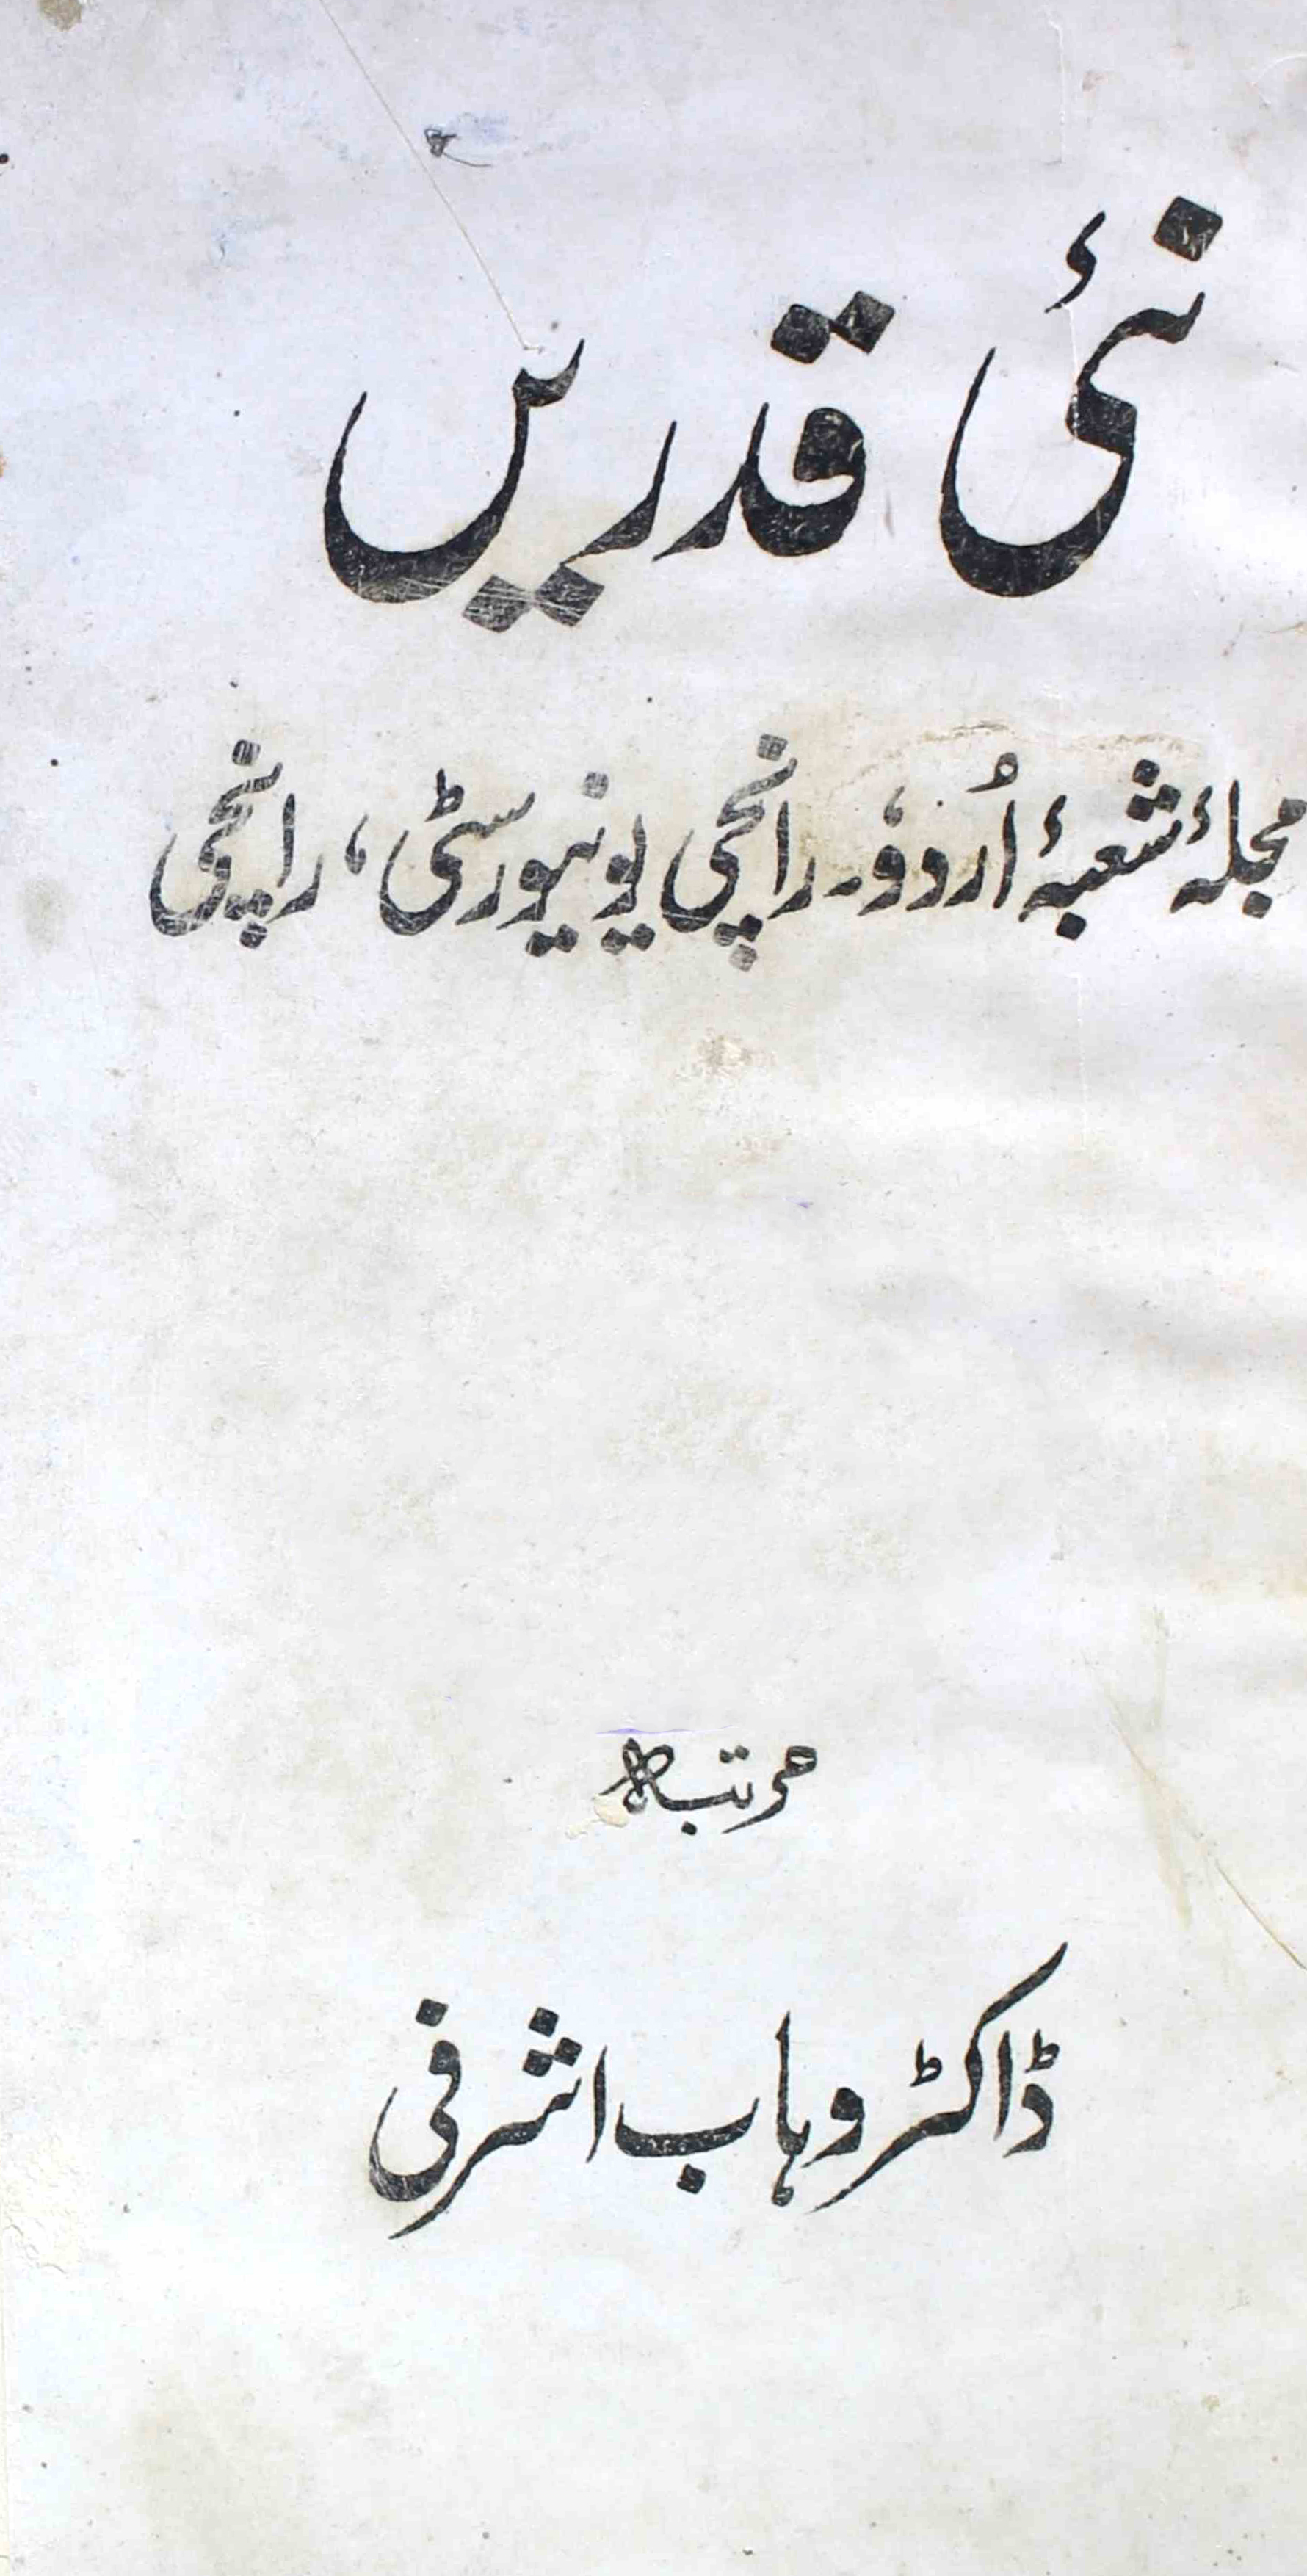 نئی قدریں
مجلۂ شعبۂ اُردو، رانچی یونیورسٹی، رانچی
مرتبہ
ڈاکٹر وہاب اشرفی